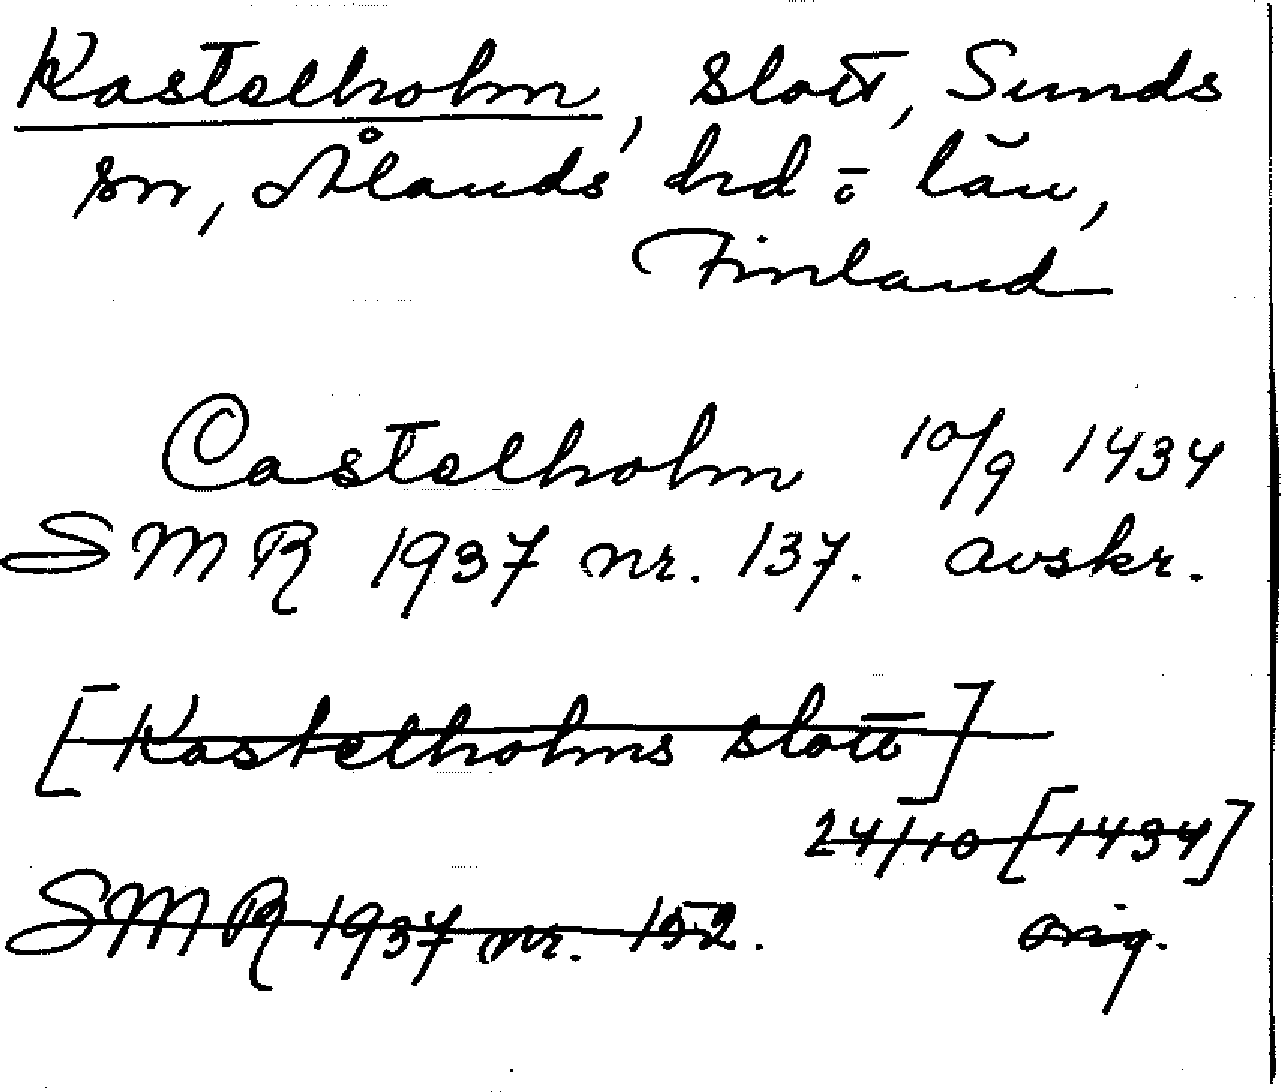 Kastelholm, slott, Sunds
sn, Ålands hrd o län,
Finland
Castelholm 10/9 1434
SMR 1937 nr. 137. avskr.
[Kastelholms slott]
24/10 [1434]
SMR 1937 nr. 152. orig.